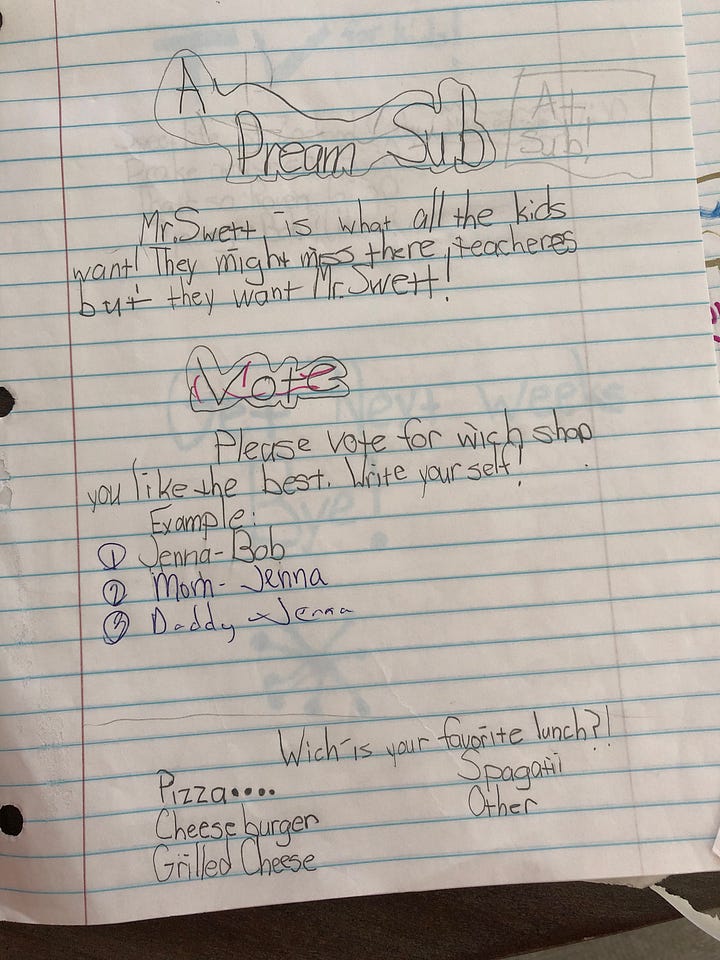 A
Dream Sub
At
Sub!
Mr. Swett is what all the kids
want! They might miss there teacheres
but they want Mr. Swett!
Vote
Please vote for wich shop
you like the best. Write your self!
Example:
① Jenna-Bob
② Mom- Jenna
③ Daddy - Jenna
Wich is your favorite lunch?!
Pizza....
Cheese burger
Grilled Cheese
Spagatii
Other
Next Weeks